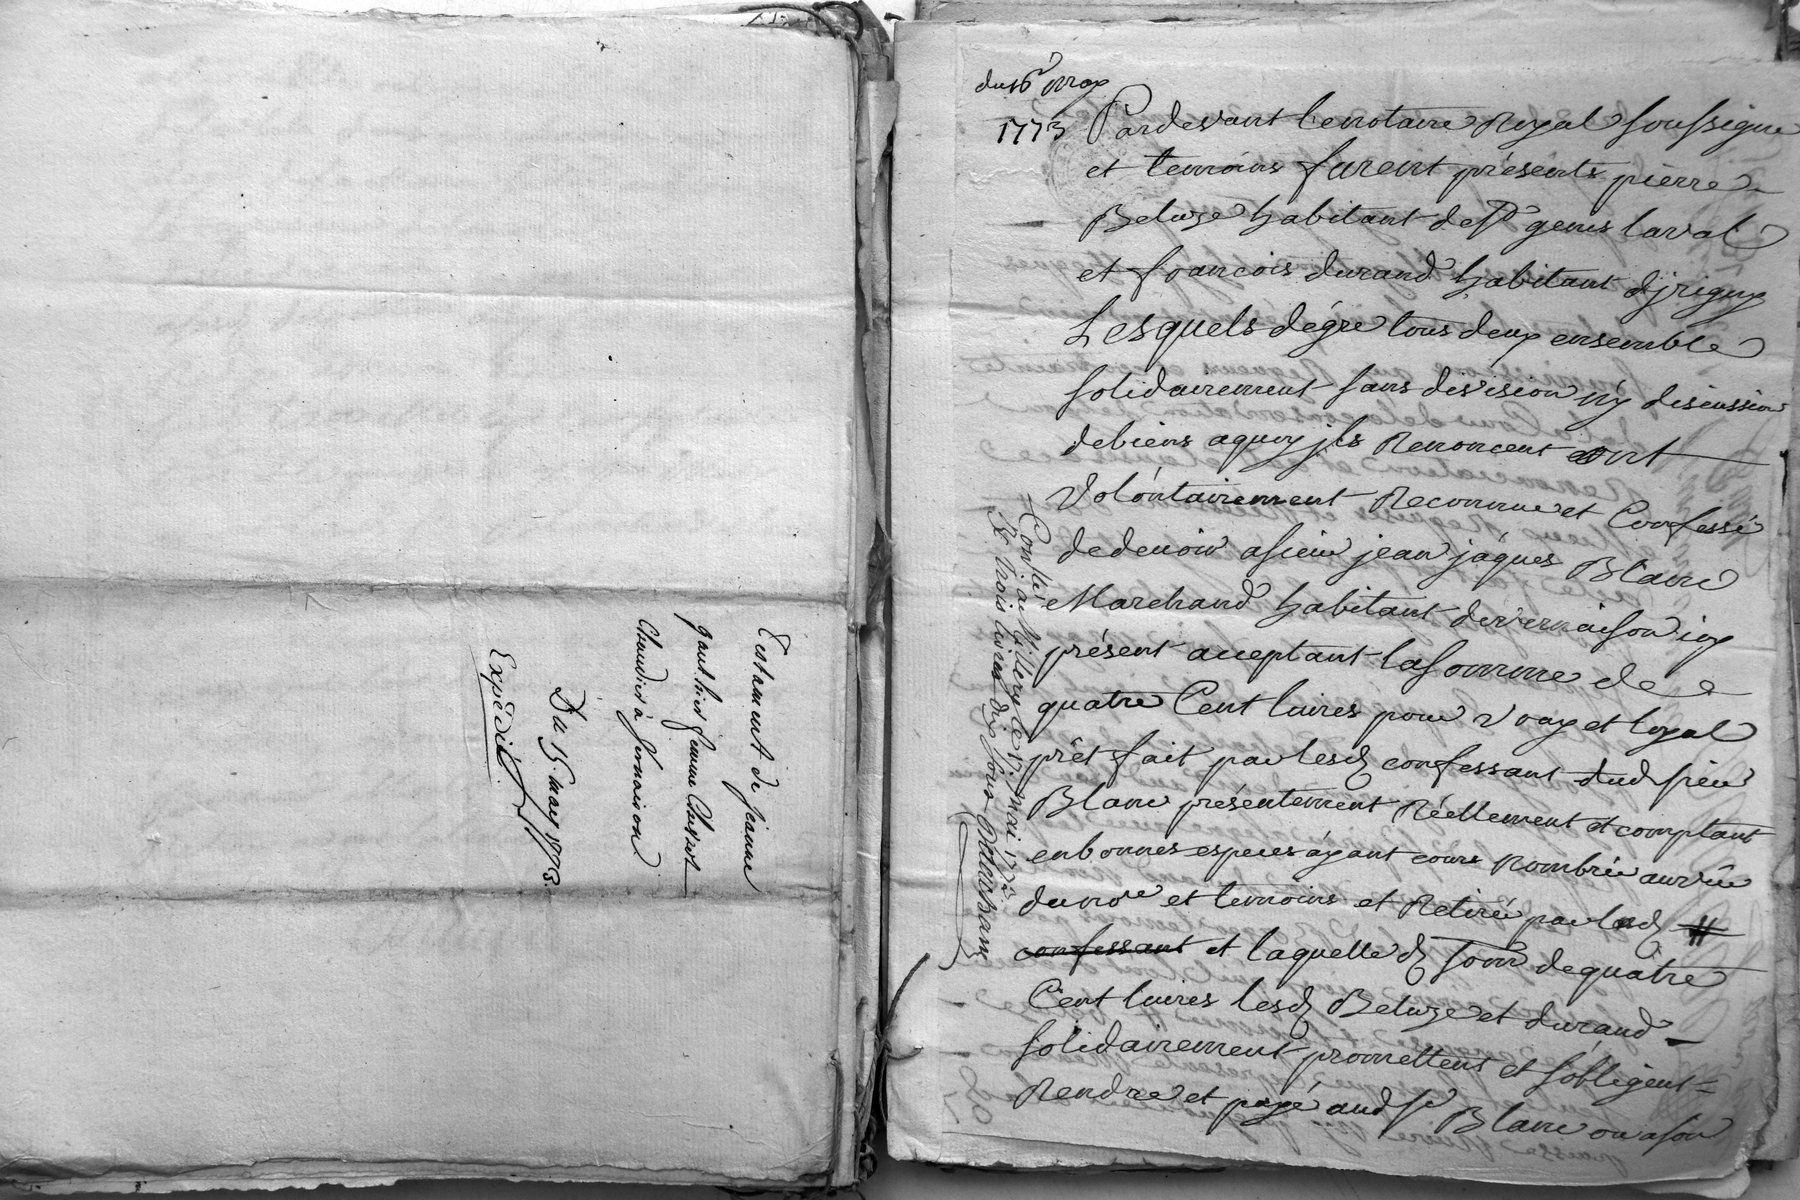 Testament de jeanne
gauthier femme Chusset
Chaudier à vernaison
Du 15. mars 1773.
Expédié
du 16 may
1773
Pardevant le notaire Royal soussigné
et temoins furent présents pierre
Beluze habitant de st genis laval
et francois durand habitant d'jrigny
Lesquels dégré tous deux ensemble
solidairement sans division n'y discussion
de biens aquoy jls Renoncent ont
volontairement Reconnu et Confessé
de devoir a sieur jean jaques Blanc
Marchand habitant de vernaison icy
présent acceptant la somme de
quatre Cent livres pour vray et loyal
prêt fait par lesd confessant dud sieur
Blanc présentement Réellement et comptant
en bonnes especes áyant cours Nombrée au vûe
du nore et temoins et Retirée par lesd #
confessant et laquelle d somme de quatre
Cent livres lesd Beluze et durand
solidairement promettent et s'obligent
Rendre et payé aud sr Blanc ou a son
Conllé a Millery le 17. mai 1773.
R. trois livres dix sous